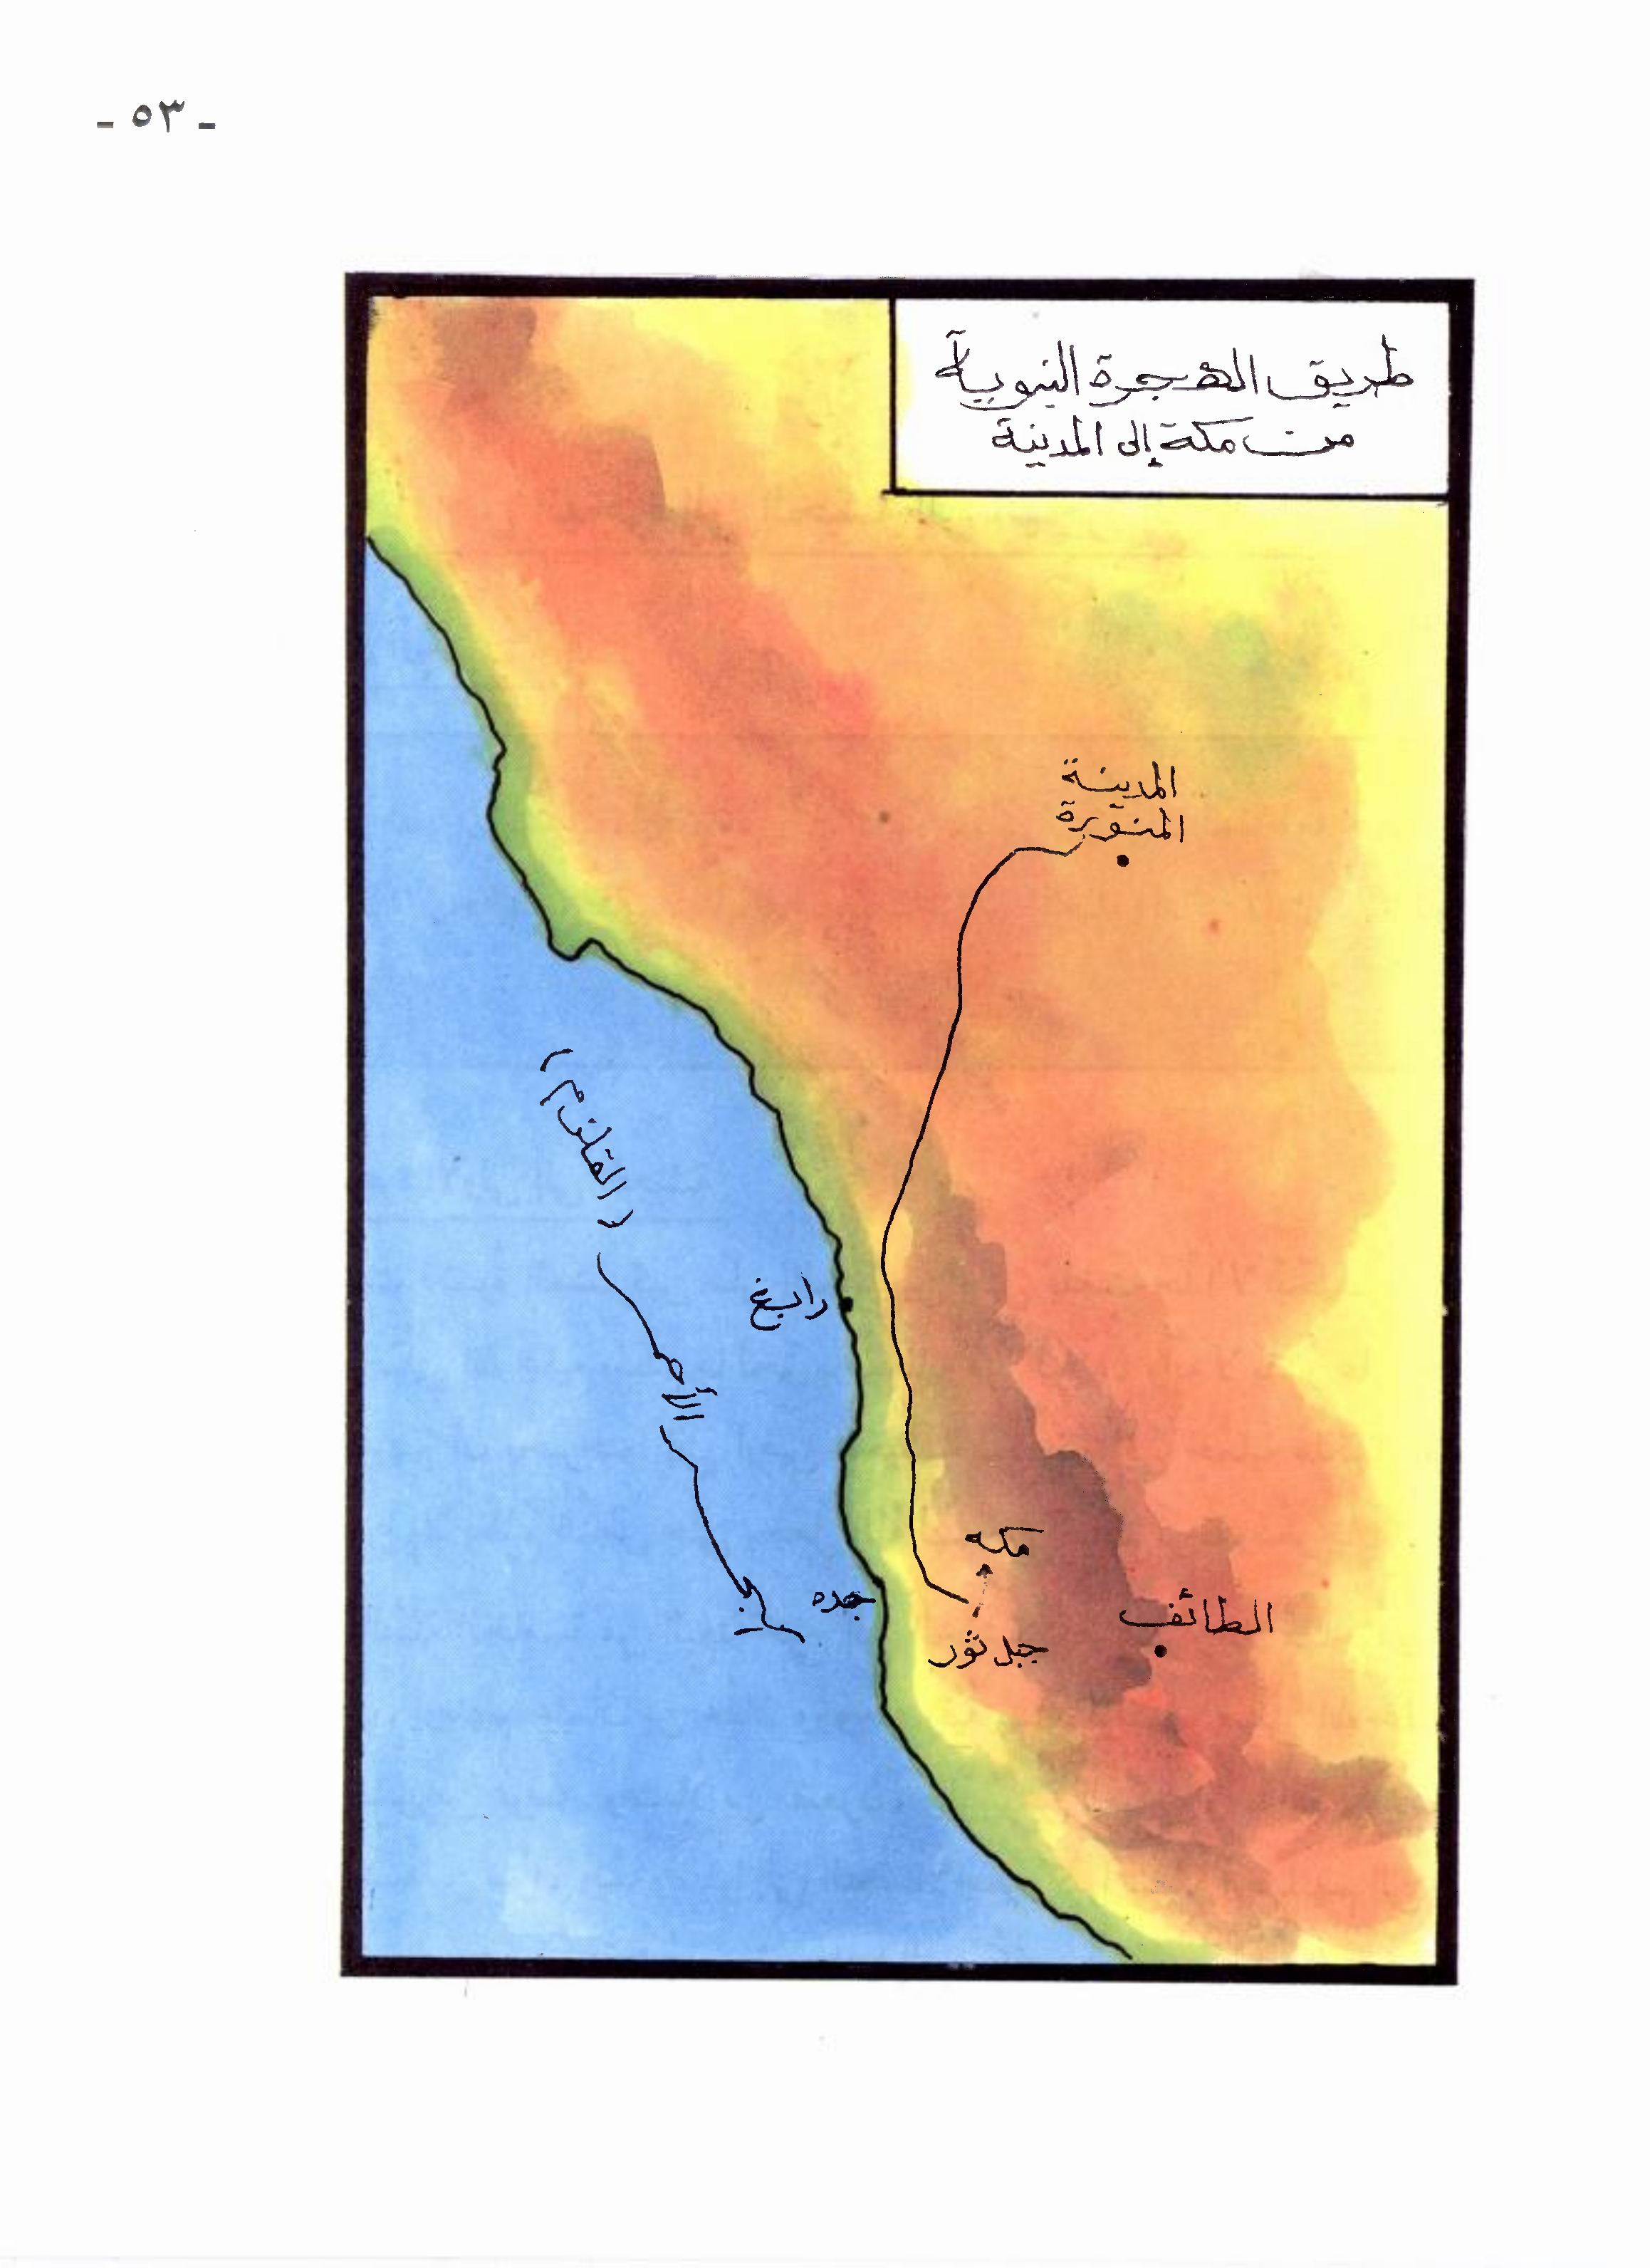 - ٥٣ -
طريق الهجرة النبوية
من مكة إلى المدينة
المدينة
المنورة
(القلزم)
رابغ
البحر الأحمر
مكه
جده
الطائف
جبل ثور